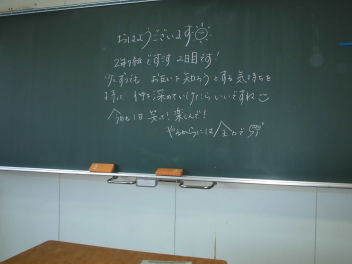 おはようございます
2年7組 です 2日目です!
少しずつでも お互いを知ろうとする気持ちを
持って 仲を深めていけたらいいですね
今日も1日 笑って!楽しんで!
やるからには 全力で